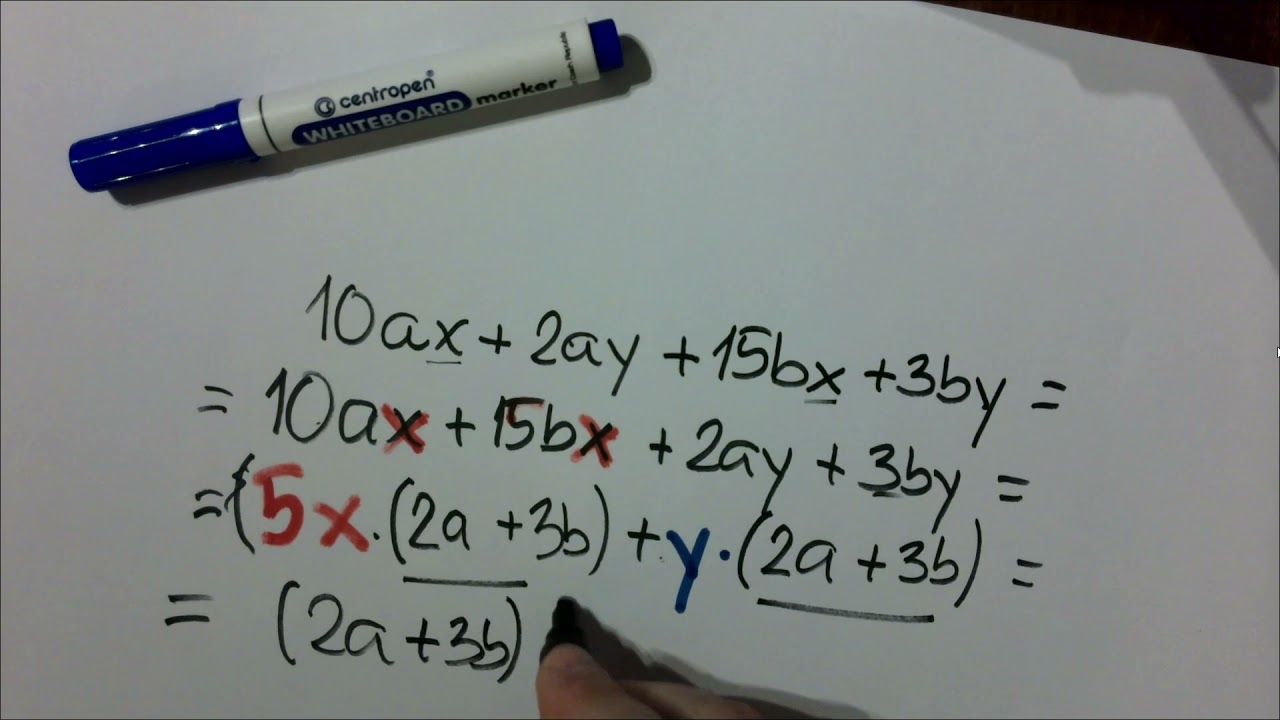 centropen®
WHITEBOARD marker
10ax + 2ay + 15bx + 3by =
= 10ax + 15bx + 2ay + 3by =
= (5x·(2a + 3b) + y·(2a + 3b) =
= (2a + 3b)